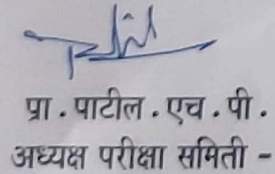 प्रा . पाटील . एच . पी .
अध्यक्ष परीक्षा समिती -